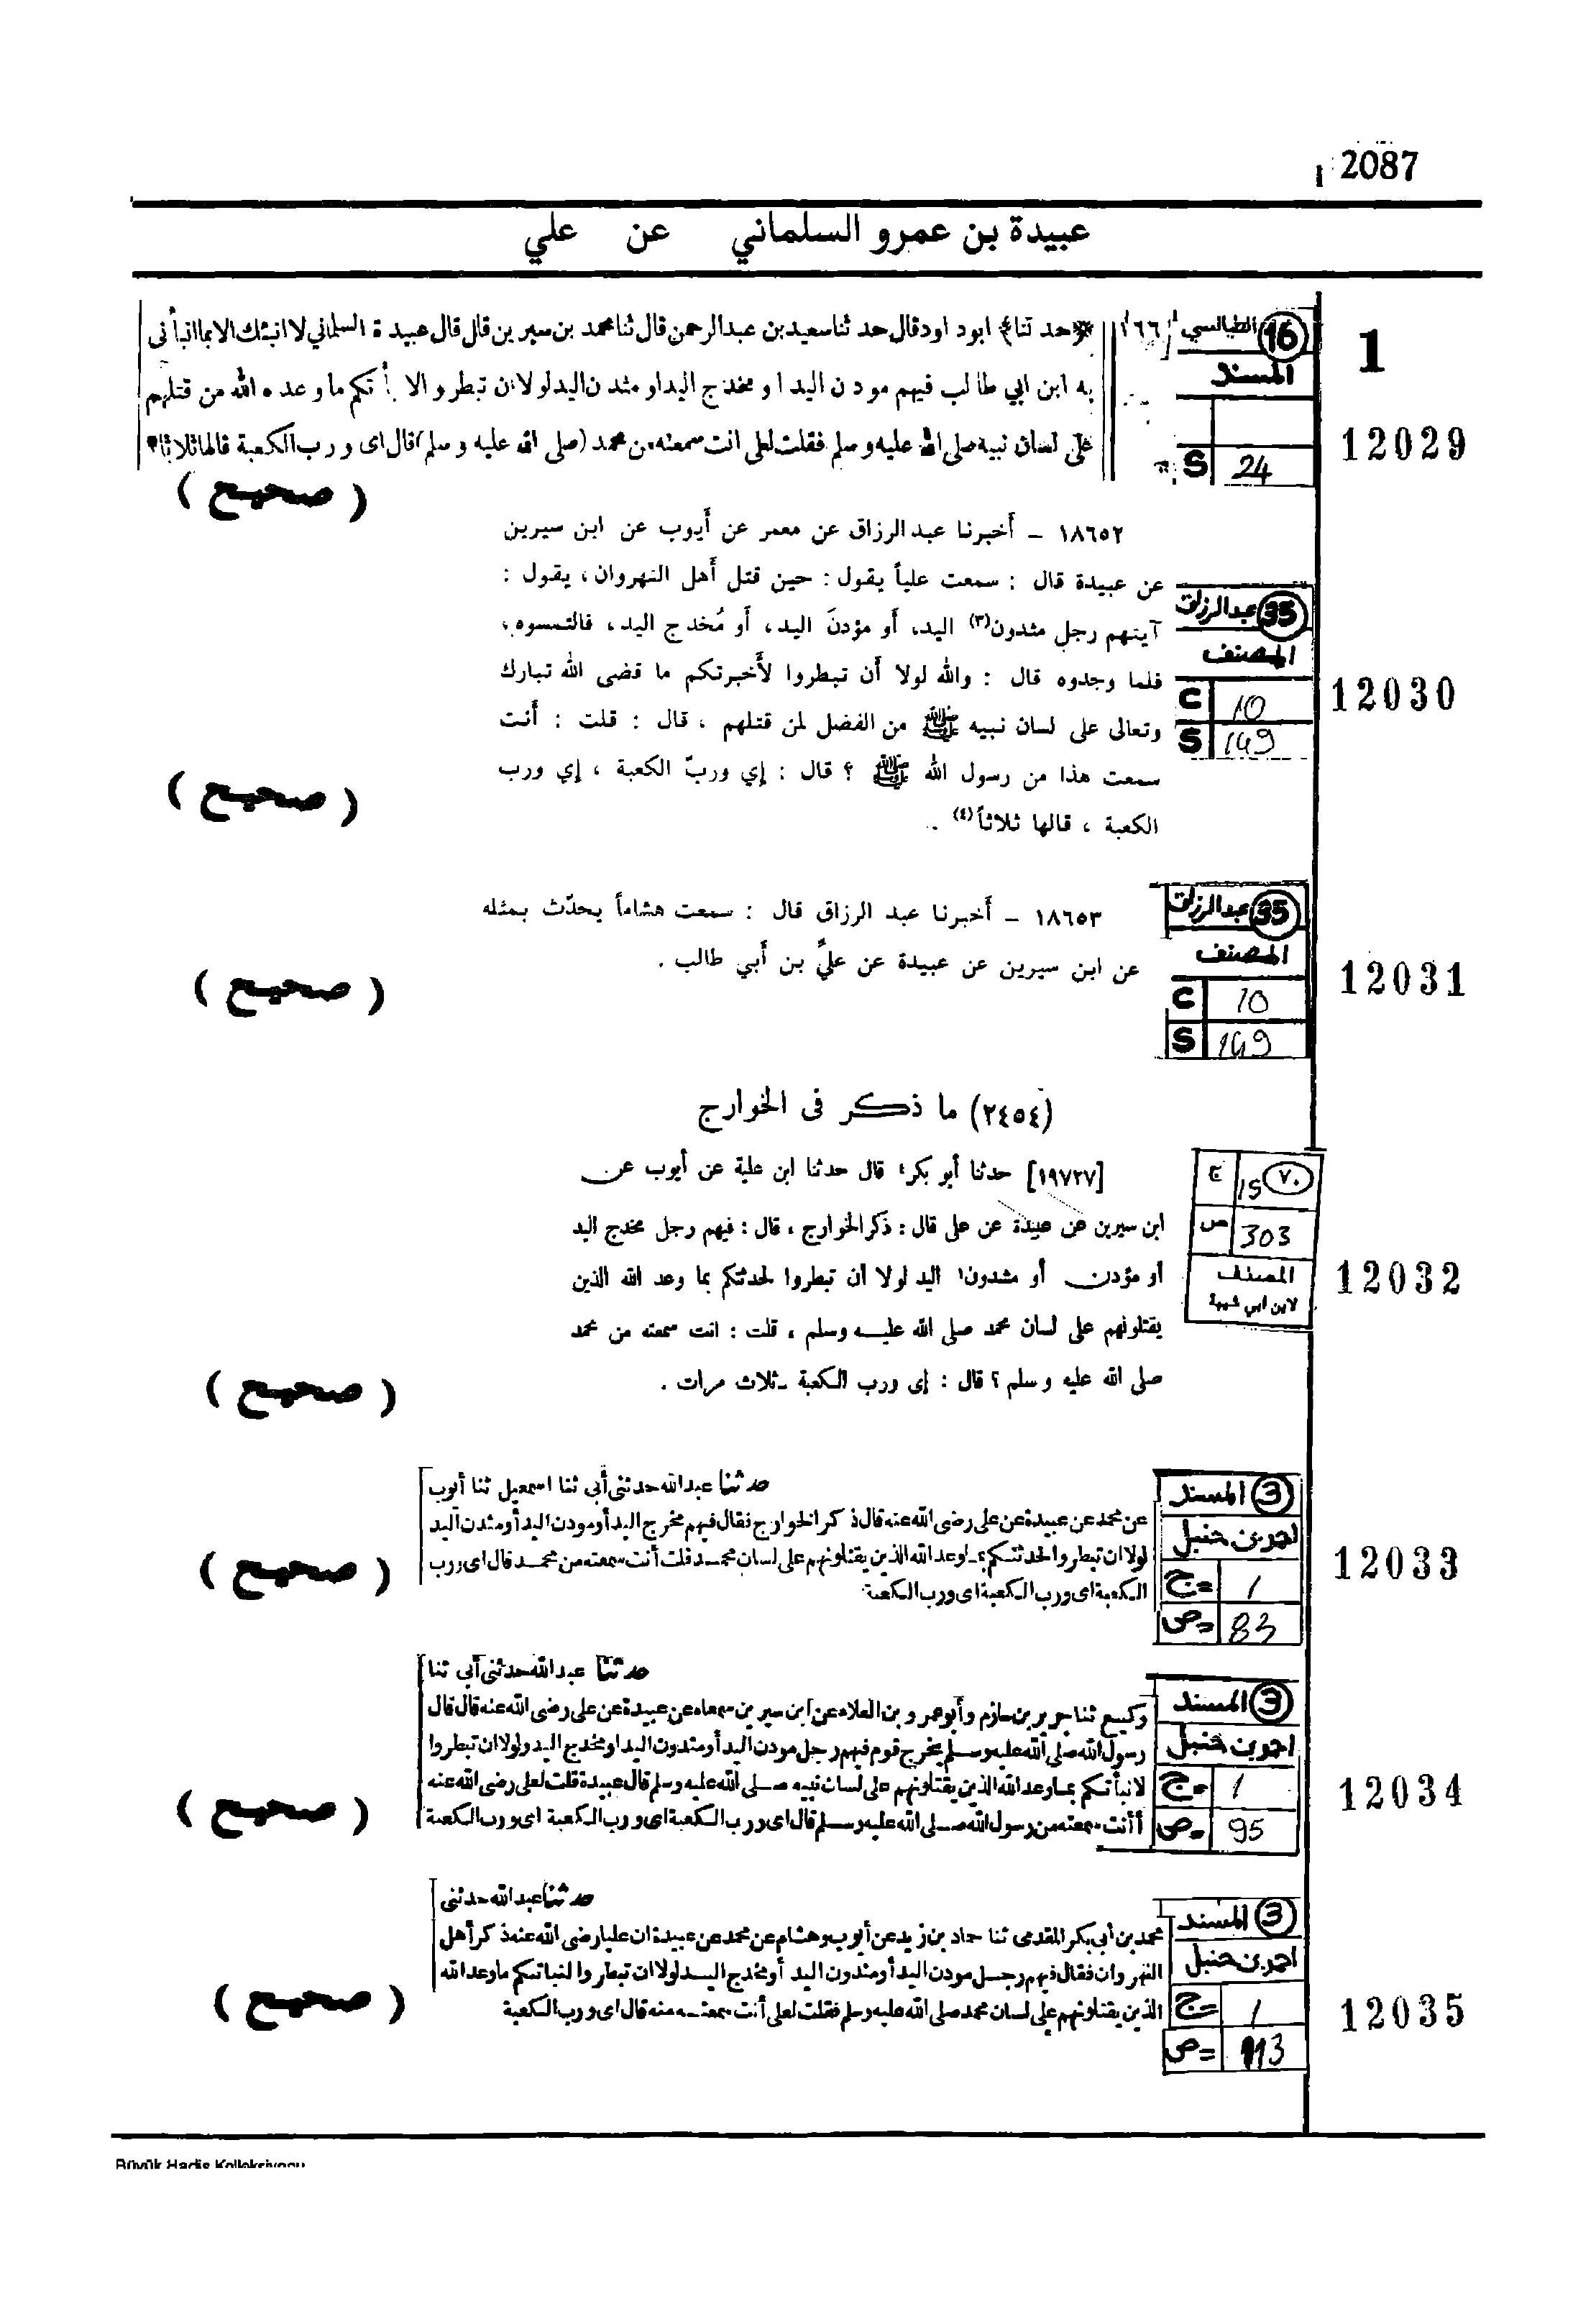 2087
عبيدة بن عمرو السلماني عن علي
1
16 الطيالسي
المسند
S 24
12029
١٦٦
﴿حدثنا﴾ ابوداود قال حدثنا سعيد بن عبدالرحمن قال ثنا محمد بن سيرين قال قال عبيدة السلماني لا انبئك الا بما انبأنى
به ابن ابي طالب فيهم مودن اليد او مخدج اليد او مثدن اليد لولا ان تبطروا لا نبأتكم ما وعده الله من قتلهم
على لسان نبيه صلى الله عليه وسلم فقلت لعلى انت سمعته من محمد (صلى الله عليه وسلم) قال اى ورب الكعبة قالها ثلاثا
( صحيح )
35 عبدالرزاق
المصنف
C 10
S 149
12030
١٨٦٥٢ – أخبرنا عبد الرزاق عن معمر عن أيوب عن ابن سيرين
عن عبيدة قال : سمعت علياً يقول : حين قتل أهل النهروان ، يقول :
آيتهم رجل مثدون(٣) اليد، أو مؤدنَ اليد، أو مُخدج اليد ، فالتمسوه،
فلما وجدوه قال : والله لولا أن تبطروا لأخبرتكم ما قضى الله تبارك
وتعالى على لسان نبيه ﷺ من الفضل لمن قتلهم ، قال : قلت : أنت
سمعت هذا من رسول الله ﷺ ؟ قال : إي وربّ الكعبة ، إي ورب
الكعبة ، قالها ثلاثاً(٤) .
( صحيح )
35 عبدالرزاق
المصنف
C 10
S 149
12031
١٨٦٥٣ – أخبرنا عبد الرزاق قال : سمعت هشاماً يحدّث بمثله
عن ابن سيرين عن عبيدة عن عليّ بن أبي طالب .
( صحيح )
(٢٤٥٤) ما ذكر فى الخوارج
٧٠
ج 15
ص 303
المصنف
لابن ابي شيبة
12032
[١٩٧٢٧] حدثنا أبو بكر؛ قال حدثنا ابن علية عن أيوب عن
ابن سيرين عن عبيدة عن على قال : ذكر الخوارج ، قال : فيهم رجل مخدج اليد
أو مؤدن أو مشدون١ اليد لولا أن تبطروا لحدثتكم بما وعد الله الذين
يقتلونهم على لسان محمد صلى الله عليه وسلم ، قلت : انت سمعته من محمد
صلى الله عليه وسلم ؟ قال : إى ورب الكعبة ـ ثلاث مرات .
( صحيح )
3 المسند
احمد بن حنبل
ج= 1
ص= 83
12033
حدثنا عبدالله حدثنى أبي ثنا اسمعيل ثنا أيوب
عن محمد عن عبيدة عن على رضى الله عنه قال ذكر الخوارج فقال فيهم مخرج اليد أو مودن اليد أو مثدن اليد
لولا ان تبطروا لحدثتكم بما وعد الله الذين يقتلونهم على لسان محمد قلت أنت سمعته من محمد قال اى ورب
الكعبة اى ورب الكعبة اى ورب الكعبة
( صحيح )
3 المسند
احمد بن حنبل
ج= 1
ص= 95
12034
حدثنا عبدالله حدثنى أبي ثنا
وكيع ثنا جرير بن حازم وأبو عمرو بن العلاء عن ابن سيرين سمعاه عن عبيدة عن على رضى الله عنه قال قال
رسول الله صلى الله عليه وسلم يخرج قوم فيهم رجل مودن اليد أو مثدون اليد أو مخدج اليد ولولا ان تبطروا
لانبأتكم بما وعد الله الذين يقتلونهم على لسان نبيه صلى الله عليه وسلم قال عبيدة قلت لعلى رضى الله عنه
أأنت سمعته من رسول الله صلى الله عليه وسلم قال اى ورب الكعبة اى ورب الكعبة اى ورب الكعبة
( صحيح )
3 المسند
احمد بن حنبل
ج= 1
ص= 113
12035
حدثنا عبدالله حدثنى
محمد بن أبي بكر المقدمى ثنا حماد بن زيد عن أيوب وهشام عن محمد عن عبيدة ان عليا رضى الله عنه ذكر أهل
النهروان فقال فيهم رجل مودن اليد أو مثدون اليد أو مخدج اليد لولا ان تبطروا لنباتكم ما وعد الله
الذين يقتلونهم على لسان محمد صلى الله عليه وسلم فقلت لعلى أنت سمعته منه قال اى ورب الكعبة
( صحيح )
Büyük Hadis Kolleksiyonu